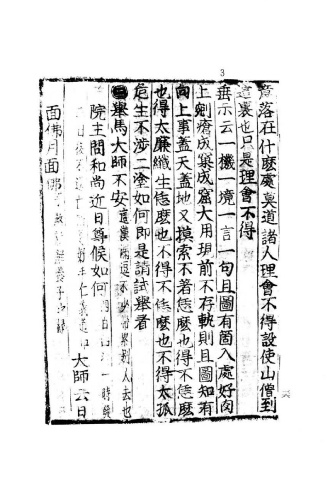 3
意落在什麼處莫道諸人理會不得設使山僧到
這裏也只是理會不得
垂示云一機一境一言一句且圖有箇入處好肉
上剜瘡成窠成窟大用現前不存軌則且圖知有
向上事蓋天蓋地又摸索不著恁麼也得不恁麼
也得太廉纖生恁麼也不得不恁麼也不得太孤
危生不涉二塗如何即是請試舉者
舉馬大師不安這漢漏逗不少帶累別人去也
院主問和尚近日尊候如何一時發
日後不送仁義道中大師云日
面佛月面佛